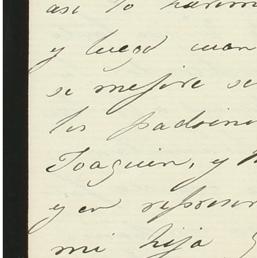 así lo
y luego cuan
se mejore se
los padrino
Joaquin, y
y en represen
mi hija